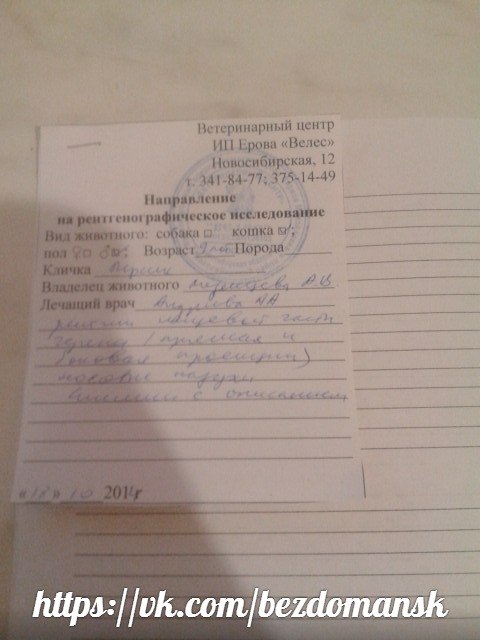 Ветеринарный центр
ИП Ерова «Велес»
Новосибирская, 12
т. 341-84-77; 375-14-49
Направление
на рентгенографическое исследование
Вид животного: собака □ кошка ☑;
пол Возраст 9 лет Порода
Кличка
Владелец животного А.В.
Лечащий врач
лицевой части
(прямая и
боковая проекции)
пазухи
с описанием
«18» 10 2014г
https://vk.com/bezdomansk